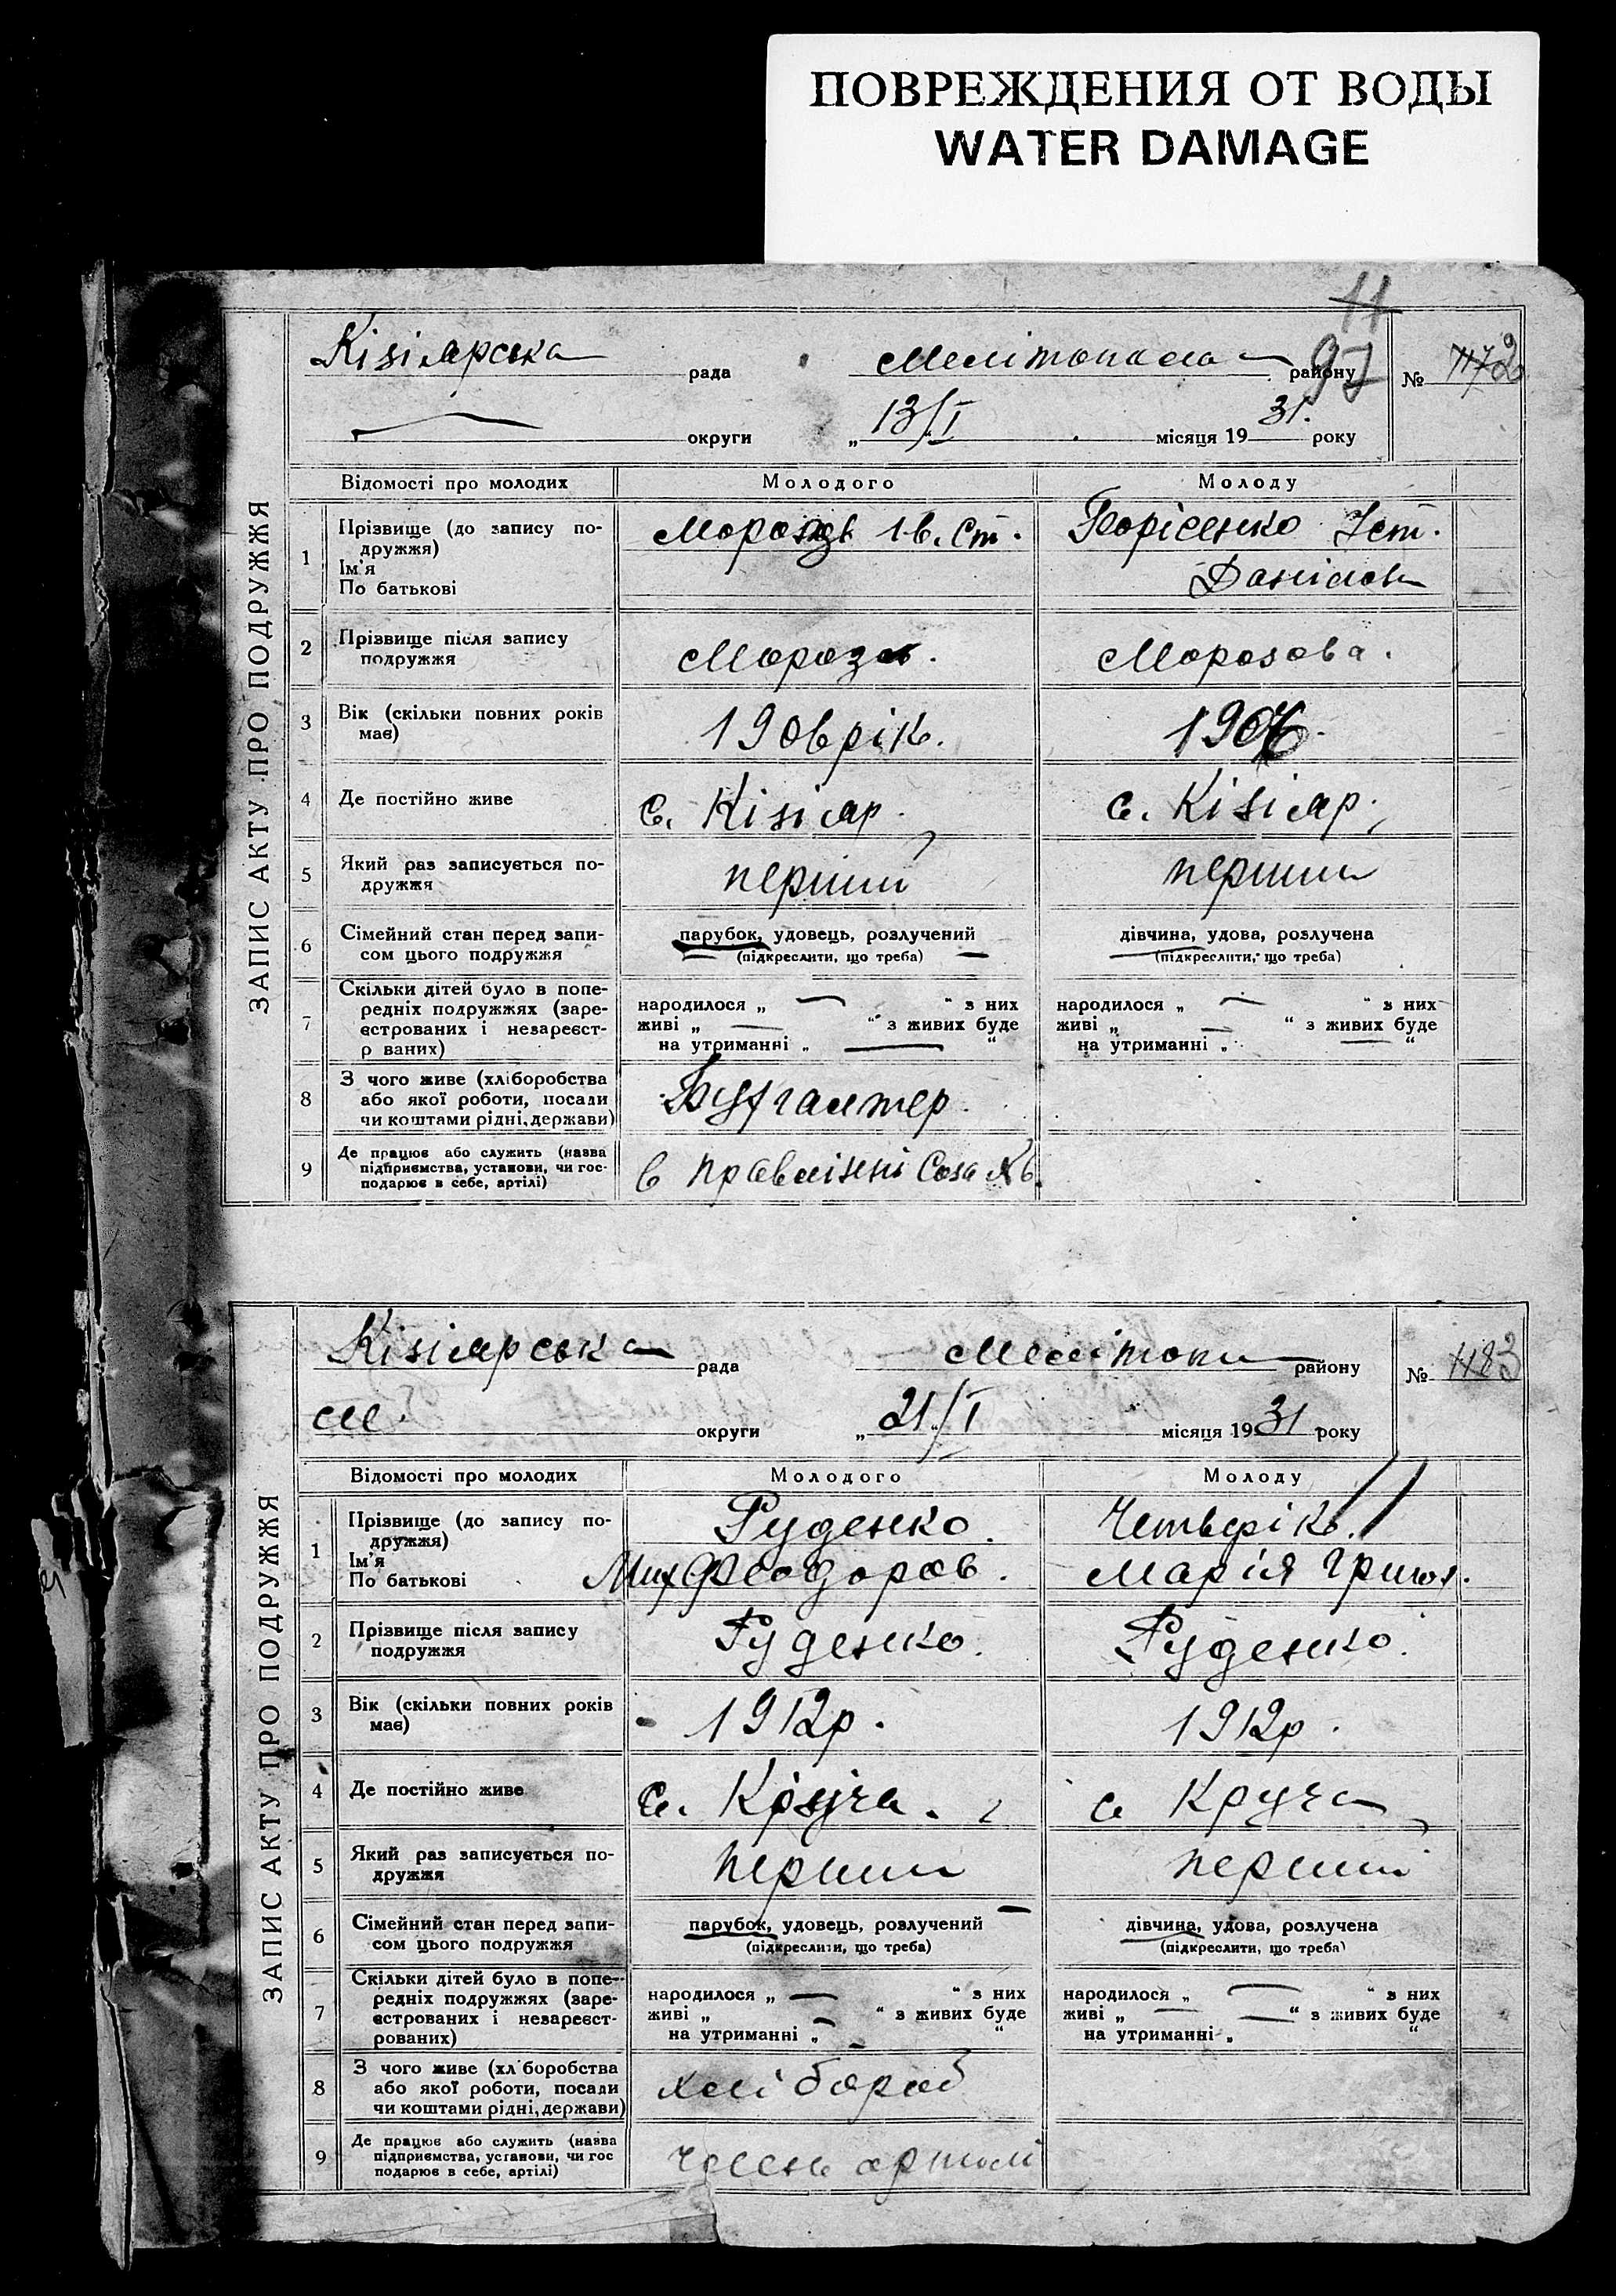 ПОВРЕЖДЕНИЯ ОТ ВОДЫ
WATER DAMAGE
11
97
Кізіярська рада Мелітопол району № 2
округи „13/I місяця 1931. року
ЗАПИС АКТУ ПРО ПОДРУЖЖЯ
Відомості про молодих Молодого Молоду
1 Прізвище (до запису по- Морозов Ів. Ст. Борісенко Уст.
дружжя)
Ім'я Данілов
По батькові
2 Прізвище після запису Морозов. Морозова.
подружжя
3 Вік (скільки повних років 1906 рік. 1906
має)
4 Де постійно живе с. Кізіяр. с. Кізіяр.
5 Який раз записується по- перший перший
дружжя
6 Сімейний стан перед запи- парубок, удовець, розлучений дівчина, удова, розлучена
сом цього подружжя (підкреслити, що треба) (підкреслити, що треба)
7 Скільки дітей було в попе-
редніх подружжях (заре- народилося „ — “ з них народилося „ — “ з них
єстрованих і незареєст- живі „ — “ з живих буде живі „ — “ з живих буде
р ваних) на утриманні „ — “ на утриманні „ — “
8 З чого живе (хліборобства Бухгалтер.
або якої роботи, посади
чи коштами рідні, держави)
9 Де працює або служить (назва в правлінні
підприємства, установи, чи гос-
подарює в себе, артілі)
Кізіярська рада Меліто району № 3
округи „21/I місяця 1931 року
ЗАПИС АКТУ ПРО ПОДРУЖЖЯ
Відомості про молодих Молодого Молоду
1 Прізвище (до запису по- Руденко. Четверік.
дружжя)
Ім'я Мих Феодоров. Марія Григор.
По батькові
2 Прізвище після запису Руденко. Руденко.
подружжя
3 Вік (скільки повних років 1912р. 1912р.
має)
4 Де постійно живе с. Круча. с Круча
5 Який раз записується по- перший перший
дружжя
6 Сімейний стан перед запи- парубок, удовець, розлучений дівчина, удова, розлучена
сом цього подружжя (підкреслити, що треба) (підкреслити, що треба)
7 Скільки дітей було в попе-
редніх подружжях (заре- народилося „ — “ з них народилося „ — “ з них
єстрованих і незареєст- живі „ “ з живих буде живі „ — “ з живих буде
рованих) на утриманні „ — “ на утриманні „ “
8 З чого живе (хл боробства хлібороб
або якої роботи, посади
чи коштами рідні, держави)
9 Де працює або служить (назва член артілі
підприємства, установи, чи гос
подарює в себе, артілі)